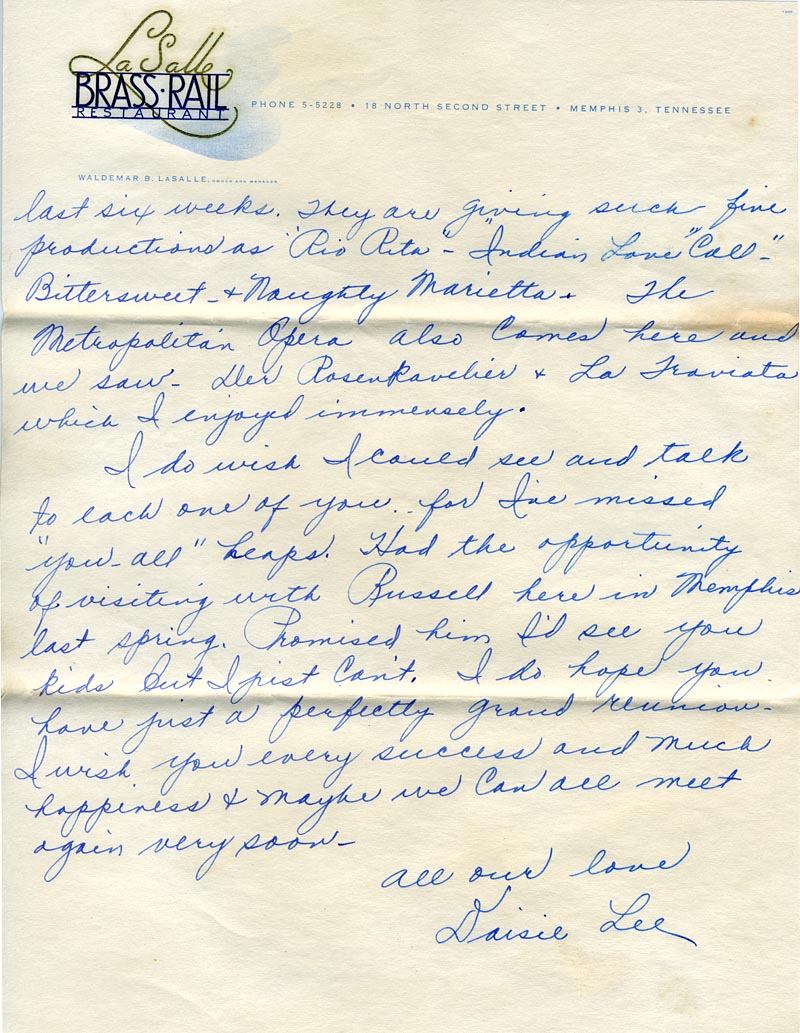 LaSalle
BRASS·RAIL
RESTAURANT
PHONE 5-5228 • 18 NORTH SECOND STREET • MEMPHIS 3, TENNESSEE
WALDEMAR B. LASALLE, OWNER AND MANAGER
last six weeks. They are giving such fine
productions as "Rio Rita" - "Indian Love "Call" -
Bittersweet - & Naughty Marietta. The
Metropolitan Opera also comes here and
we saw - Der Rosenkavelier & La Traviata
which I enjoyed immensely.
I do wish I could see and talk
to each one of you.. for I've missed
"you-all" heaps. Had the opportunity
of visiting with Russell here in Memphis
last spring. Promised him I'd see you
kids but I just can't. I do hope you
have just a perfectly grand reunion -
I wish you every success and much
happiness & maybe we can all meet
again very soon -
all our love
Daisie Lee